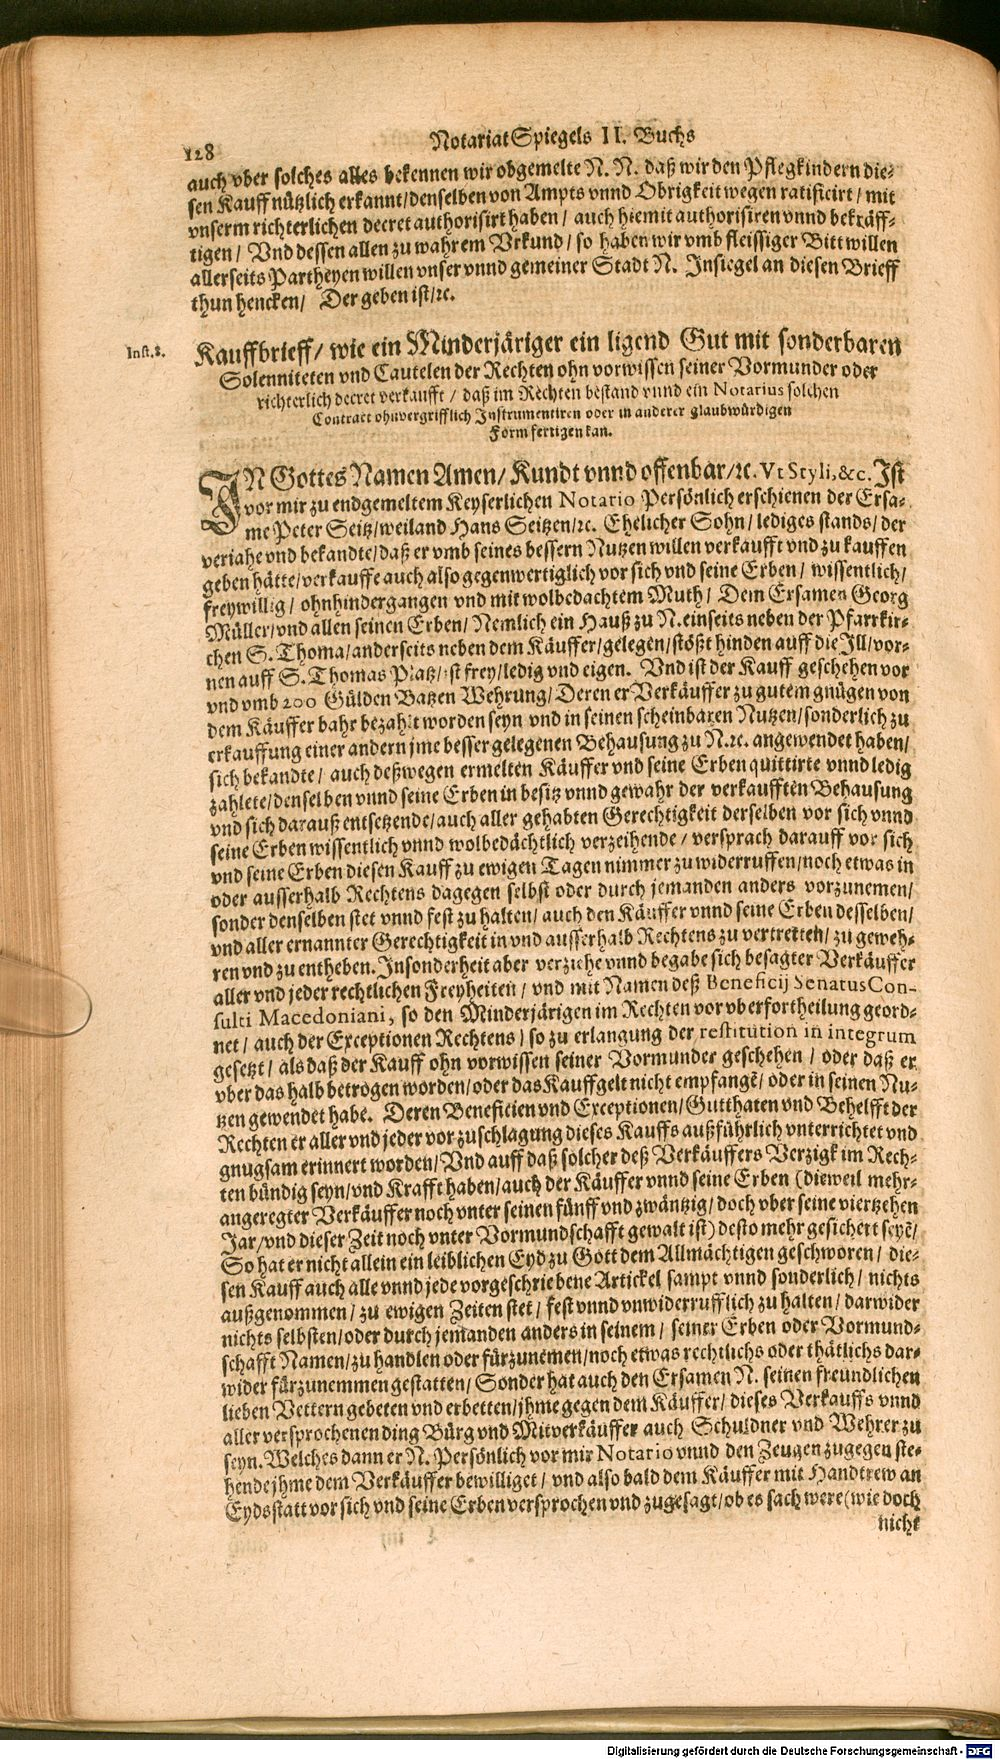 128
Notariat Spiegels II. Buchs
auch vber solches alles bekennen wir obgemelte N. N. daß wir den Pflegkindern die-
sen Kauff nützlich erkannt/denselben von Ampts vnnd Obrigkeit wegen ratificirt / mit
vnserm richterlichen decret authorisirt haben / auch hiemit authorisiren vnnd bekräff-
tigen / Vnd dessen allen zu wahrem Vrkund / so haben wir vmb fleissiger Bitt willen
allerseits Partheyen willen vnser vnnd gemeiner Stadt N. Insiegel an diesen Brieff
thun hencken / Der geben ist/ꝛc.
Inst.8.
Kauffbrieff/ wie ein Minderjäriger ein ligend Gut mit sonderbaren
Solenniteten vnd Cautelen der Rechten ohn vorwissen seiner Vormunder oder
richterlich decret verkaufft / daß im Rechten bestand vnnd ein Notarius solchen
Contract ohnvergrifflich Instrumentiren oder in anderer glaubwürdigen
Form fertigen kan.
IN Gottes Namen Amen/ Kundt vnnd offenbar/ꝛc. Vt Styli, &c. Ist
vor mir zu endgemeltem Keyserlichen Notario Persönlich erschienen der Ersa-
me Peter Seitz/weiland Hans Seitzen/ꝛc. Ehelicher Sohn / lediges stands/ der
verjahe vnd bekandte/daß er vmb seines bessern Nutzen willen verkaufft vnd zu kauffen
geben hätte/verkauffe auch also gegenwertiglich vor sich vnd seine Erben / wissentlich/
freywillig / ohnhindergangen vnd mit wolbedachtem Muth / Dem Ersamen Georg
Müller/vnd allen seinen Erben/ Nemlich ein Hauß zu N. einseits neben der Pfarrkir-
chen S. Thoma/anderseits neben dem Käuffer/gelegen/stößt hinden auff die Jll/vor-
nen auff S. Thomas Platz/ist frey/ledig vnd eigen. Vnd ist der Kauff geschehen vor
vnd vmb 200 Gülden Batzen Wehrung/ Deren er Verkäuffer zu gutem gnügen von
dem Käuffer bahr bezahlt worden seyn vnd in seinen scheinbaren Nutzen/sonderlich zu
erkauffung einer andern jme besser gelegenen Behausung zu N.ꝛc. angewendet haben/
sich bekandte / auch deßwegen ermelten Käuffer vnd seine Erben quittirte vnnd ledig
zahlete/denselben vnnd seine Erben in besitz vnnd gewahr der verkaufften Behausung
vnd sich darauß entsetzende/auch aller gehabten Gerechtigkeit derselben vor sich vnnd
seine Erben wissentlich vnnd wolbedächtlich verzeihende / versprach darauff vor sich
vnd seine Erben diesen Kauff zu ewigen Tagen nimmer zu widerruffen/noch etwas in
oder ausserhalb Rechtens dagegen selbst oder durch jemanden anders vorzunemen/
sonder denselben stet vnnd fest zu halten/ auch den Käuffer vnnd seine Erben desselben/
vnd aller ernannter Gerechtigkeit in vnd ausserhalb Rechtens zu vertretten/ zu geweh-
ren vnd zu entheben. Insonderheit aber verziehe vnnd begabe sich besagter Verkäuffer
aller vnd jeder rechtlichen Freyheiten / vnd mit Namen deß Beneficij Senatus Con-
sulti Macedoniani, so den Minderjärigen im Rechten vor vberfortheilung geord-
net / auch der Exceptionen Rechtens / so zu erlangung der restitution in integrum
gesetzt / als daß der Kauff ohn vorwissen seiner Vormunder geschehen / oder daß er
vber das halb betrogen worden/oder das Kauffgelt nicht empfangē/ oder in seinen Nu-
tzen gewendet habe. Deren Beneficien vnd Exceptionen/Gutthaten vnd Behelfft der
Rechten er aller vnd jeder vor zuschlagung dieses Kauffs außführlich vnterrichtet vnd
gnugsam erinnert worden/ Vnd auff daß solcher deß Verkäuffers Verzigk im Rech-
ten bündig seyn/vnd Krafft haben/auch der Käuffer vnnd seine Erben (dieweil mehr-
angeregter Verkäuffer noch vnter seinen fünff vnd zwäntzig/ doch vber seine viertzehen
Jar/vnd dieser Zeit noch vnter Vormundschafft gewalt ist) desto mehr gesichert seyē/
So hat er nicht allein ein leiblichen Eyd zu Gott dem Allmächtigen geschworen / die-
sen Kauff auch alle vnnd jede vorgeschriebene Artickel sampt vnnd sonderlich / nichts
außgenommen / zu ewigen Zeiten stet / fest vnnd vnwiderrufflich zu halten / darwider
nichts selbsten/oder durch jemanden anders in seinem / seiner Erben oder Vormund-
schafft Namen/zu handlen oder fürzunemen/noch etwas rechtlichs oder thätlichs dar-
wider fürzunemmen gestatten / Sonder hat auch den Ersamen N. seinen freundlichen
lieben Vettern gebeten vnd erbetten/jhme gegen dem Käuffer / dieses Verkauffs vnnd
aller versprochenen ding Bürg vnd Mitverkäuffer auch Schuldner vnd Wehrer zu
seyn. Welches dann er N. Persönlich vor mir Notario vnnd den Zeugen zugegen ste-
hende jhme dem Verkäuffer bewilliget / vnd also bald dem Käuffer mit Handtrew an
Eydsstatt vor sich vnd seine Erben versprochen vnd zugesagt/ ob es sach were (wie doch
nicht
Digitalisierung gefördert durch die Deutsche Forschungsgemeinschaft - DFG